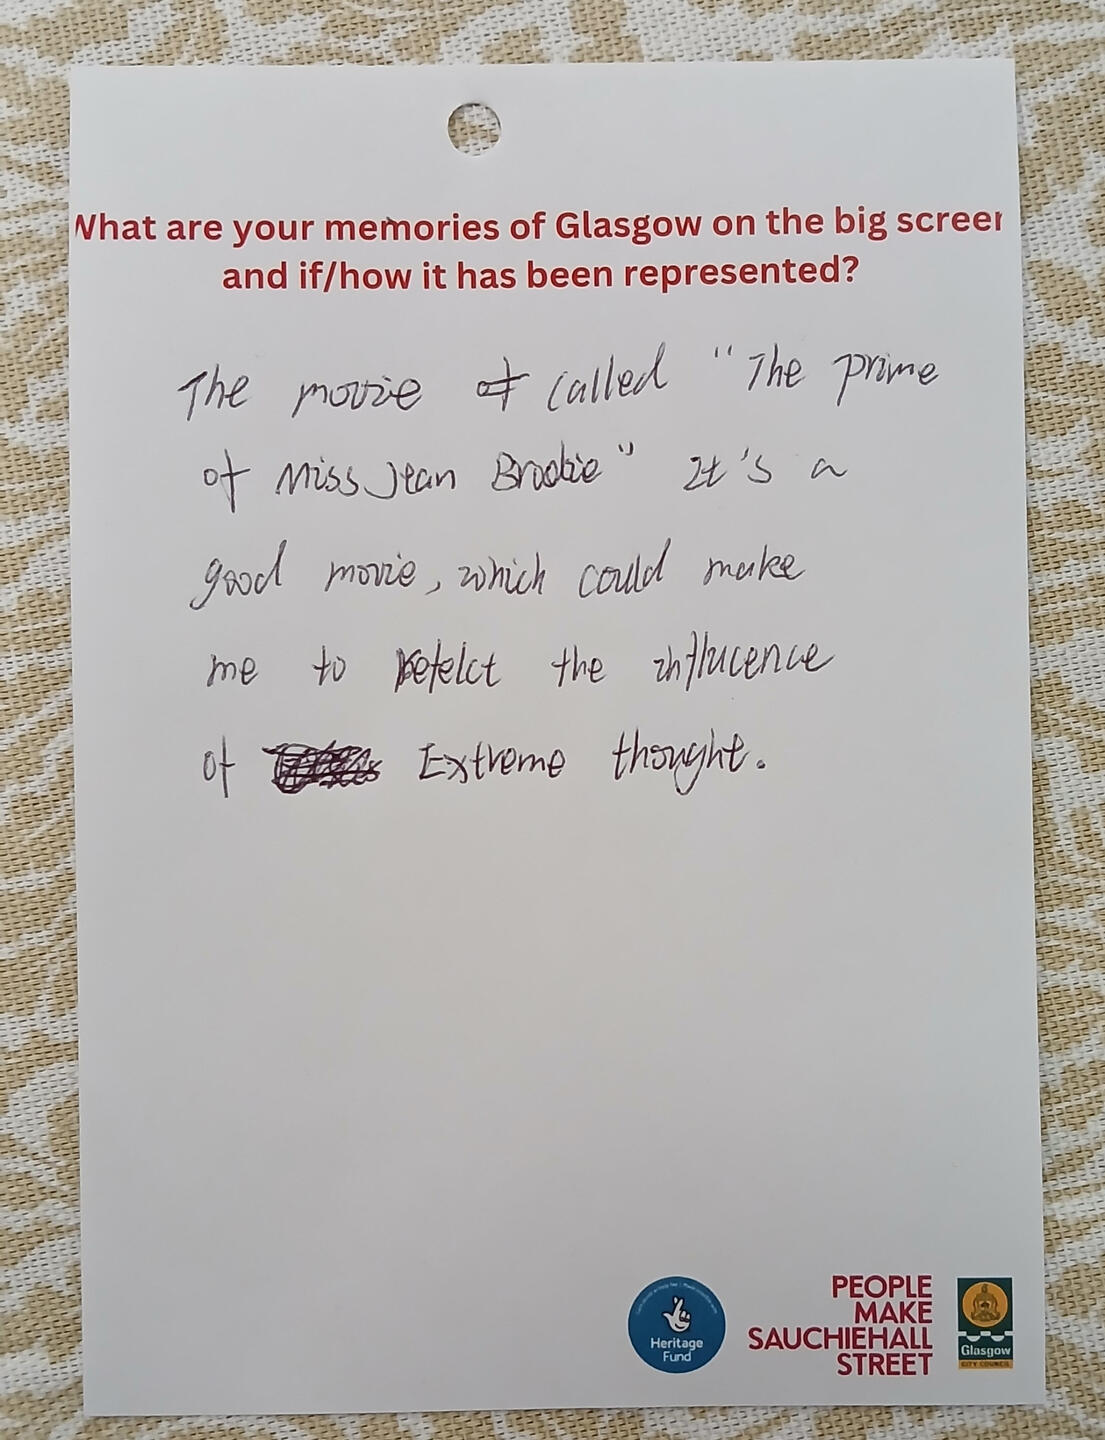 What are your memories of Glasgow on the big screen
and if/how it has been represented?
The movie called "The prime
of Miss Jean Brodie" It's a
good movie, which could make
me to Refelct the influcence
of Extreme thought.
Heritage
Fund
PEOPLE
MAKE
SAUCHIEHALL
STREET
Glasgow
CITY COUNCIL